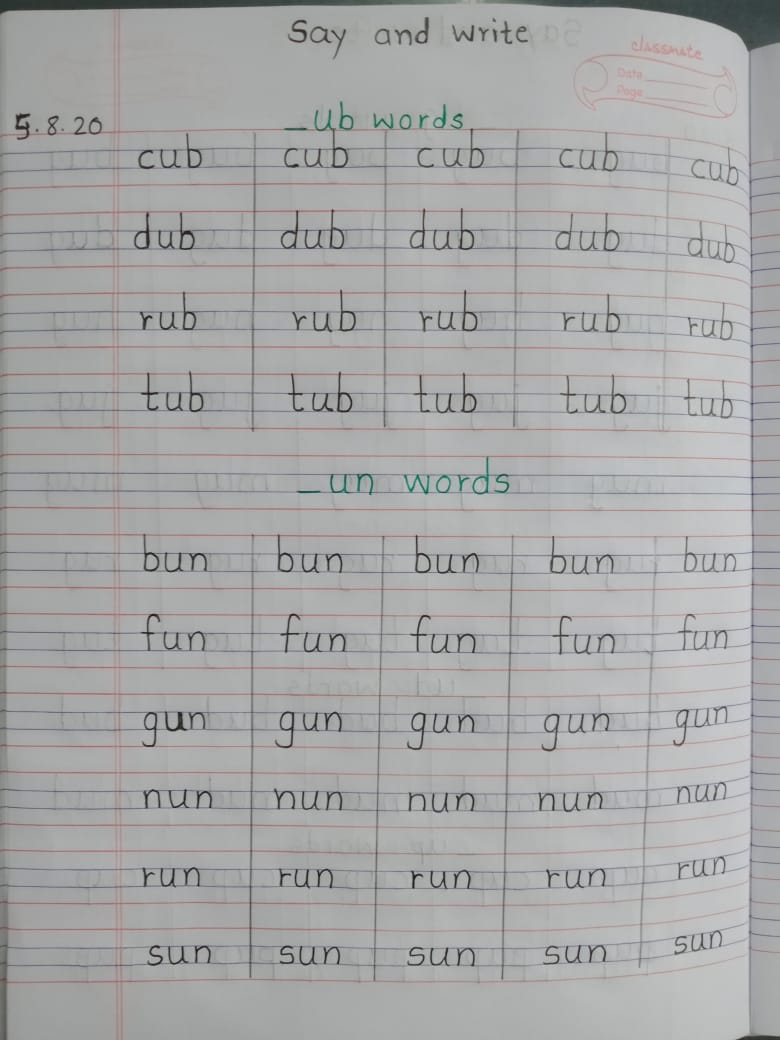 Say and write
classmate
Date
Page
5.8.20
_ub words
cub cub cub cub cub
dub dub dub dub dub
rub rub rub rub rub
tub tub tub tub tub
_un words
bun bun bun bun bun
fun fun fun fun fun
gun gun gun gun gun
nun nun nun nun nun
run run run run run
sun sun sun sun sun